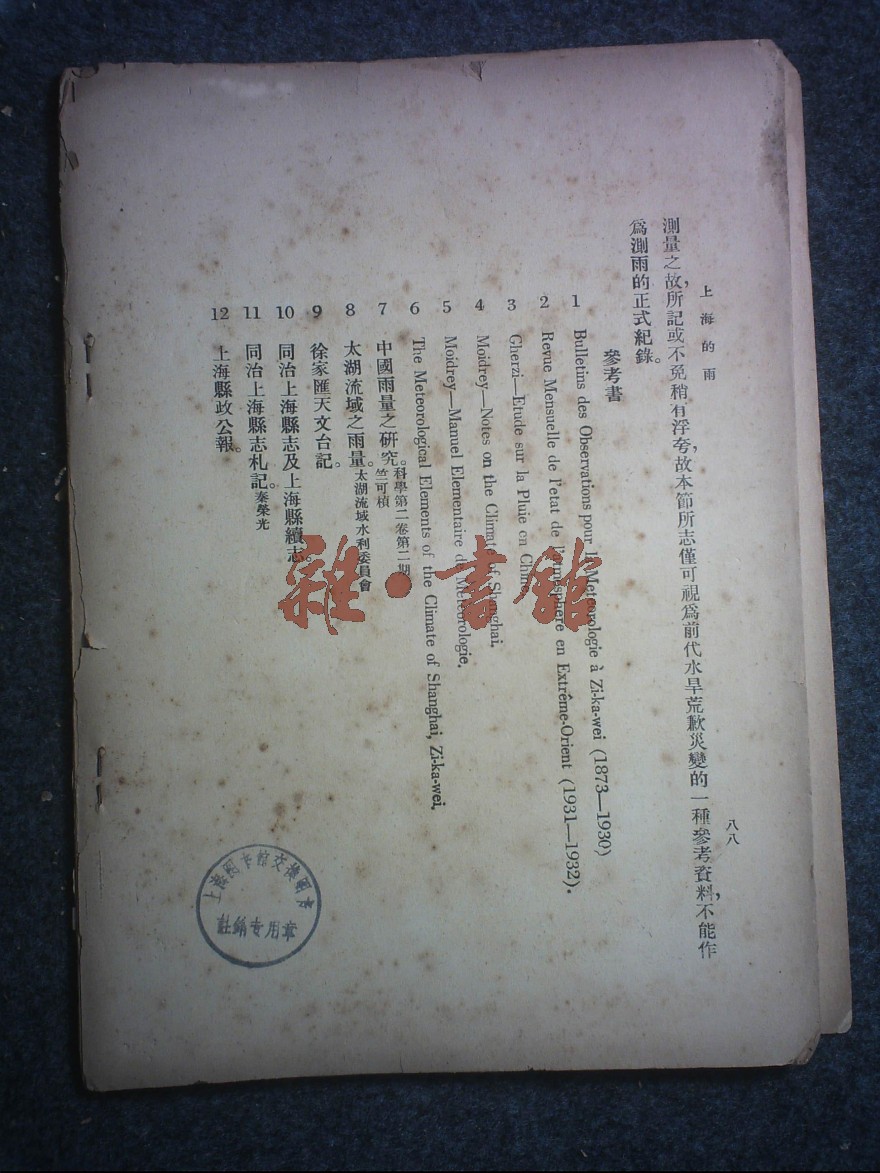 上海的雨
八八
測量之故,所記或不免稍有浮夸,故本節所志僅可視爲前代水旱荒歉災變的一種參考資料,不能作
爲測雨的正式紀錄。
參考書
1 Bulletins des Observations pour la Meteorologie à Zi-ka-wei (1873—1930)
2 Revue Mensuelle de l'etat de l'atmosphere en Extrême-Orient (1931—1932).
3 Gherzi—Etude sur la Pluie en Chine
4 Moidrey—Notes on the Climate of Shanghai.
5 Moidrey—Manuel Elementaire de Meteorologie.
6 The Meteorological Elements of the Climate of Shanghai, Zi-ka-wei,
7 中國雨量之研究。科學第二卷第二期 竺可楨
8 太湖流域之雨量。太湖流域水利委員會
9 徐家匯天文台記。
10 同治上海縣志及上海縣續志。
11 同治上海縣志札記。秦榮光
12 上海縣政公報。
上海图书馆交換圖書
註銷专用章
雜·書館